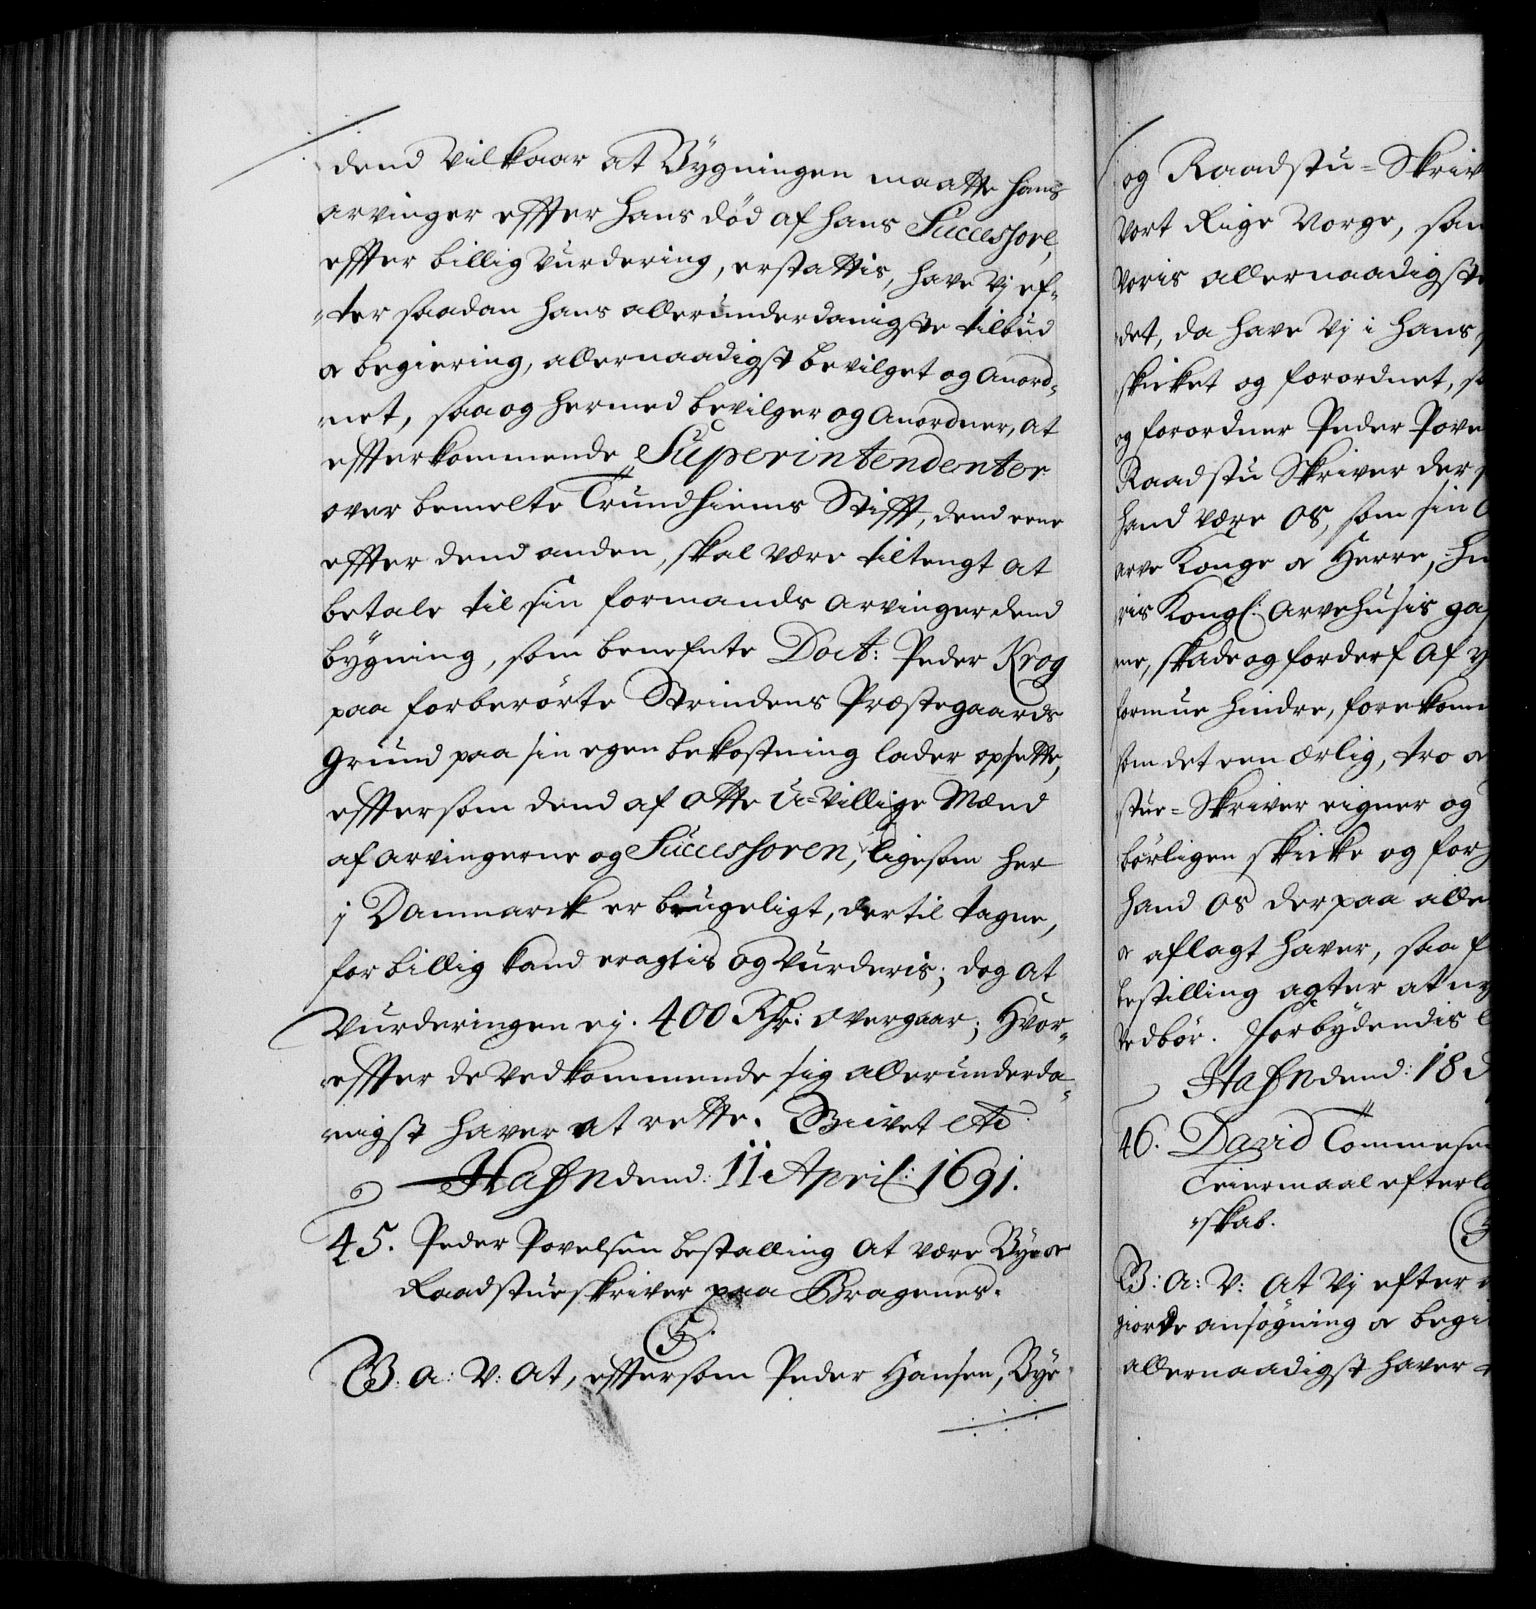 dend Vilkaar at Bygningen maatte hans
arvinger effter hans död af hans Successore,
effter billig Vurdering, erstattis, have Vj ef-
ter saadan hans allerunderdanigste tilbud
oc begiering, allernaadigst bevilget og anord-
net, saa og hermed bevilger og anordner, at
effterkommende Superintendenter
over bemelte Trundhiems Stifft, dend eene
effter dend anden, skal være tiltengt at
betale til sin formands arvinger dend
bygning, som benefnte Doct: Peder Krog
paa forberörte Strindens Præstegaards
grund paa sin egen bekostning lader opsette,
efftersom dend af otte U-villige Mænd
af arvingerne og Successoren, ligesom her
j Danmarck er brugeligt, dertil tagne,
for billig kand eragtis og Vurderis; dog at
Vurderingen ej. 400 Rdr: overgaar; Hvor-
effter de Vedkommende sig allerunderda-
nigst haver at rette. Givet etc
Hafn dend: 11 April: 1691.
45. Peder Povelsen bestalling at være Bye oc
Raadstueskriver paa Bragenes.
C5.
G: a: V: at, efftersom Peder Hansen, Bye
og Raadstu-Skriv
Vort Rige Norge, san
Voris allernaadigste
det, da have Vj i hans
skicket og forordnet, s
og forordner Peder Pove
Raadstu Skriver der
hand være os, som sin
arve Konge oc Herre, hu
ris Kongl: arvehusis ga
me, skade og forderf af
formue hindre, forekom
som det een ærlig, tro oc
stue-Skriver eigner og
börligen skicke og for
hand os derpaa alle
oc aflagt haver, saa f
bestilling agter at ny
Vedbör. Forbydendis
Hafn dend: 18
46. David Tommesen
Leiermaal efterla
skab.
G: a: V: at Vj efter
giorde ansögning oc begi
allernaadigst haver